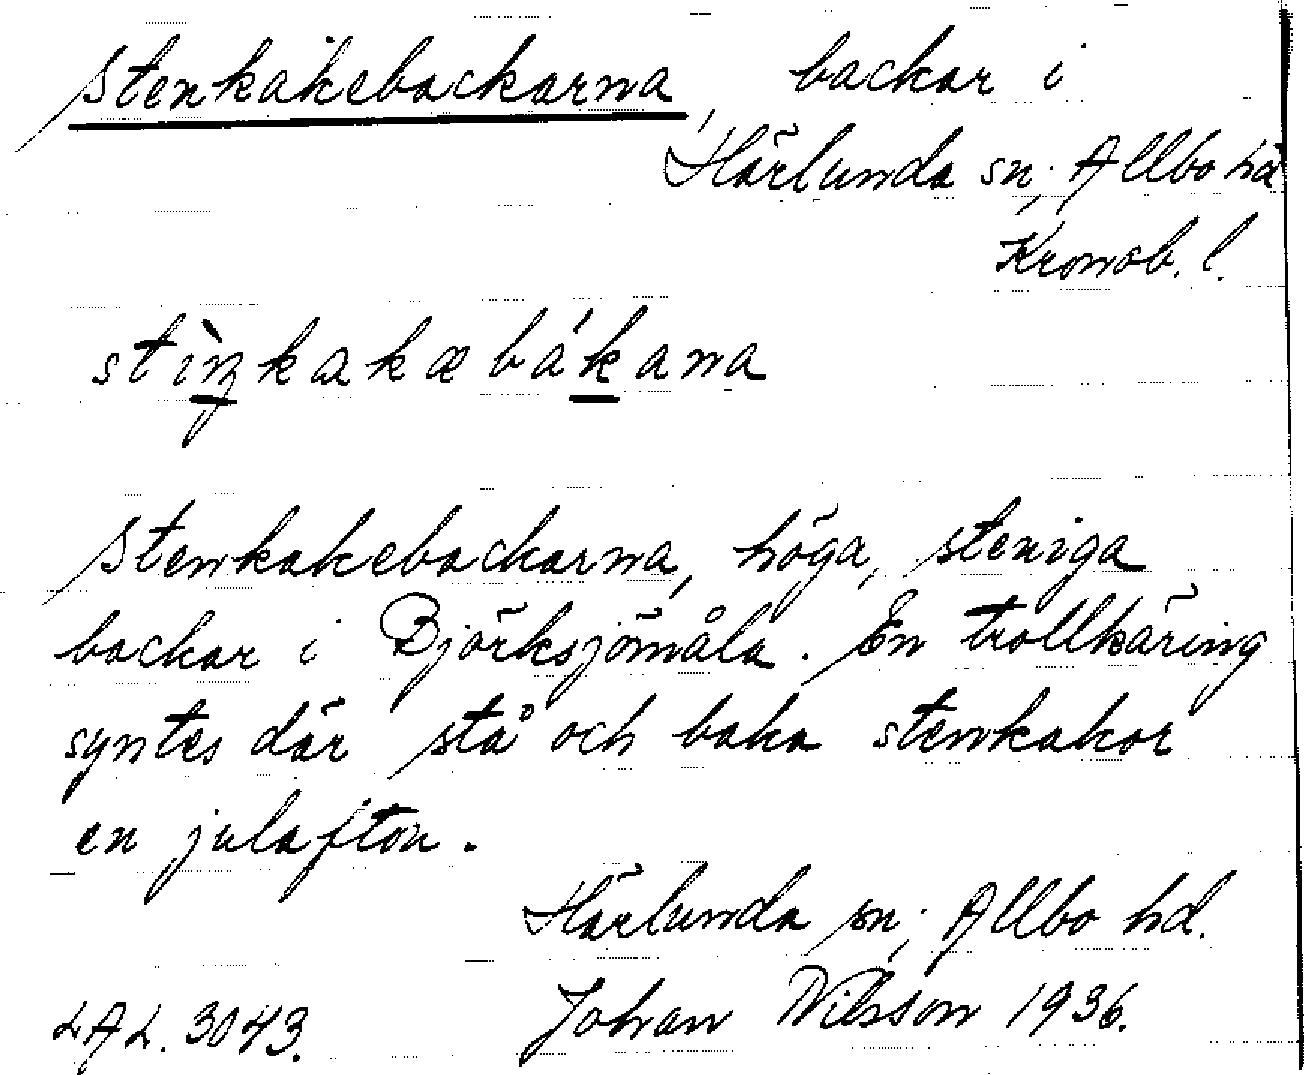 Stenkakebackarna, backar i
Härlunda sn; Allbo hd
Kronob. l.
Stenkakebackarna, höga, steniga
backar i Björksjömåla. En trollkäring
syntes där stå och baka stenkakor
en julafton.
Härlunda sn; Allbo hd.
LAL. 3043. Johan Nilsson 1936.